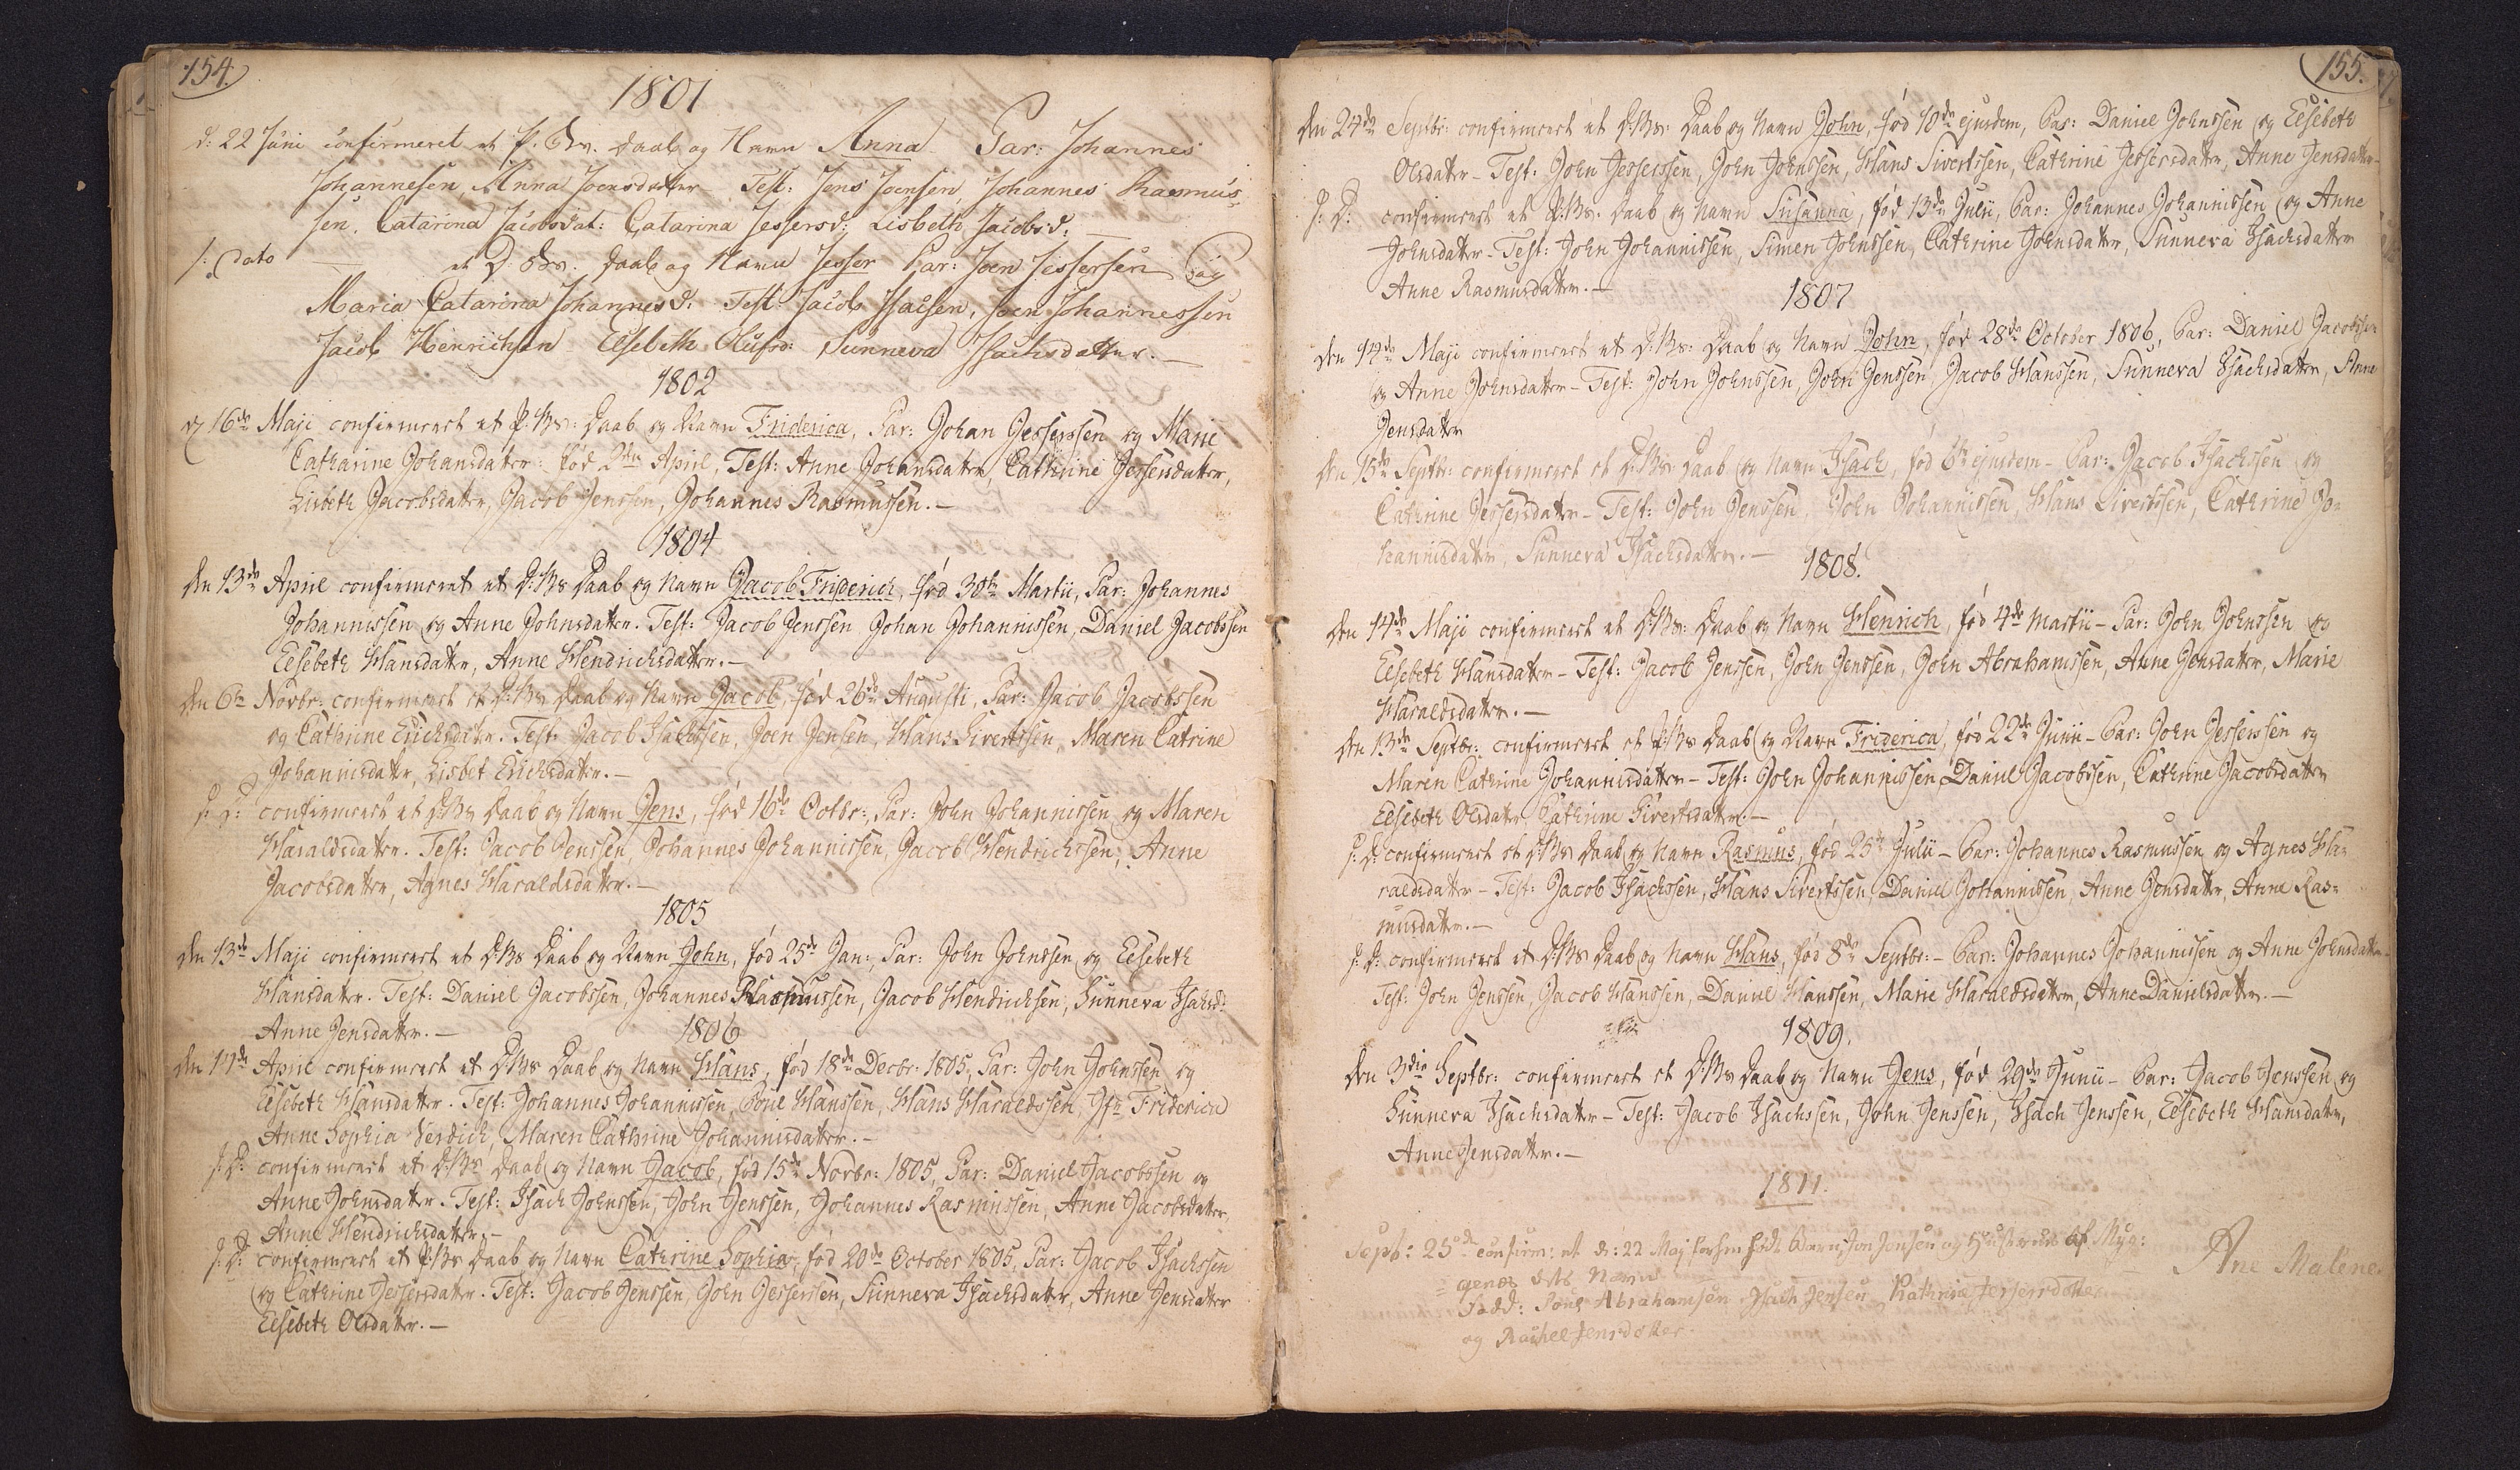 154.
1801
d: 22 Juni confirmeret et P. Bs. Daab og Navn Anna Par: Johannes
Johannesen, Anna Joensdatter Test: Jens Joensen, Johannes Rasmus-
sen, Catarina Jacobsdat: Catarina Jessersd: Lisbeth Jacobsd:
s: Dato — et D. Bs. Daab og Navn Jesser Par: Joen Jessersen og
Maria Catarina Johannesd: Test: Jacob Isacsen, Joen Johannessen
Jacob Henrichsen Elsebeth Olufsd: Sunneva Isachsdatter. —
1802
16de Maji confirmeret et P. Bs: Daab og Navn Friderica, Par: Johan Jesserssen og Marie
Catharine Johansdatter født 2den April, Test: Anne Johansdatter, Cathrine Jessersdatter,
Lisbeth Jacobsdatter, Jacob Jenssen, Johannes Rasmussen. —
1804
den 13de April confirmeret et D: Bs Daab og Navn Jacob Friderich, fød 30te Martii, Par: Johannes
Johannissen og Anne Johnsdatter. Test: Jacob Jenssen Johan Johannissen, Daniel Jacobssen
Elsebeth Hansdatter, Anne Hendrichsdatter. —
den 6te Novbr: confirmeret et D: Bs Daab og Navn Jacob, fød 26de Augusti, Par: Jacob Jacobssen
og Cathrine Erichsdatter. Test: Jacob Isachssen, Joen Jensen, Hans Sivertssen, Maren Catrine
Johannisdatter, Lisbet Erichsdatter. —
s: D: confirmeret et D: Bs Daab og Navn Jens, fød 16de Octbr:, Par: John Johannissen og Maren
Haraldsdatter. Test: Jacob Jenssen, Johannes Johannissen, Jacob Hendrichssen, Anne
Jacobsdatter, Agnes Haraldsdatter. —
1805
den 13de Maji confirmeret et D: Bs Daab og Navn John, fød 25de Jan:, Par: John Johnssen og Elsebeth
Hansdatter. Test: Daniel Jacobssen, Johannes Rasmussen, Jacob Hendrichsen, Sunneva Isachsd:
Anne Jensdatter. —
1806
den 17de April confirmeret et D: Bs Daab og Navn Hans, fød 18de Decbr: 1805, Par: John Johnssen og
Elsebeth Hansdatter. Test: Johannes Johannissen, Poul Hanssen, Hans Haraldssen, Jfr Friderica
Anne Sophia, Maren Cathrine Johannisdatter. —
s: D: confirmeret et D: Bs Daab og Navn Jacob, fød 15de Novbr: 1805, Par: Daniel Jacobssen og
Anne Johnsdatter. Test: Isach Johnssen, John Jenssen, Johannes Rasmussen, Anne Jacobsdatter,
Anne Hendrichsdatter. —
s: D: confirmeret et P: Bs Daab og Navn Cathrine Sophia, fød 20de October 1805, Par: Jacob Isachssen
og Cathrine Jessersdatter. Test: Jacob Jenssen, John Jesserssen, Sunneva Isachsdatter, Anne Jensdatter
Elsebeth Olsdatter. —
155.
den 24de Septbr: confirmeret et D: Bs: Daab og Navn John, fød 10de ejusdem, Par: Daniel Johnssen og Elsebeth
Olsdatter – Test: John Jesserssen, John Johnssen, Hans Sivertssen, Cathrine Jessersdatter, Anne Jensdatter –
s: D: confirmeret et P: Bs. Daab og Navn Susanna, fød 13de Julii, Par: Johannes Johannissen og Anne
Johnsdatter – Test: John Johannissen, Simen Johnssen, Cathrine Johnsdatter, Sunneva Isachsdatter
Anne Rasmusdatter. —
1807
den 14de Maji confirmeret et D: Bs: Daab og Navn John, fød 28de October 1806, Par: Daniel Jacobssen
og Anne Johnsdatter – Test: John Johnssen, John Jenssen, Jacob Hanssen, Sunneva Isachsdatter, Anne
Jensdatter
den 15de Septbr: confirmeret et D: Bs Daab og Navn Isach, fød 6te ejusdem – Par: Jacob Isachssen og
Cathrine Jessersdatter – Test: John Jenssen, John Johannissen, Hans Sivertssen, Cathrine Jo-
hannisdatter, Sunneva Isachsdatter. —
1808.
den 14de Maji confirmeret et D: Bs: Daab og Navn Henrich, fød 4de Martii – Par: John Johnssen og
Elsebeth Hansdatter – Test: Jacob Jenssen, John Jenssen, John Abrahamssen, Anne Jensdatter, Marie
Haraldsdatter. —
den 13de Septbr: confirmeret et P: Bs Daab og Navn Friderica, fød 22de Junii – Par: John Jesserssen og
Maren Cathrine Johannisdatter – Test: John Johannissen, Daniel Jacobssen, Cathrine Jacobsdatter
Elsebeth Olsdatter, Cathrine Sivertsdatter. —
s: D: confirmeret et D: Bs Daab og Navn Rasmus, fød 25de Julii – Par: Johannes Rasmussen og Agnes Ha-
raldsdatter – Test: Jacob Isachssen, Hans Sivertssen, Daniel Johannissen, Anne Jensdatter, Anne Ras-
musdatter. —
s: D: confirmeret et D: Bs Daab og Navn Hans, fød 8de Septbr: – Par: Johannes Johannissen og Anne Johnsdatter –
Test: John Jenssen, Jacob Hanssen, Daniel Hanssen, Marie Haraldsdatter, Anne Danielsdatter. —
1809.
den 3die Septbr: confirmeret et D: Bs Daab og Navn Jens, fød 29de Junii – Par: Jacob Jenssen og
Sunneva Isachsdatter – Test: Jacob Isachssen, John Jenssen, Isach Jenssen, Elsebeth Hansdatter,
Anne Jensdatter. —
1811.
Septb: 25de confirm: et d: 22 Maj født Barn, Jon Jonsen og Hustrues af Myg:
Ane Malene.
= genæs dets Navn
Fadd: Poul Abrahamsen Isach Jensen, Kathrine Jessersdatter
og Rachel Jensdatter.